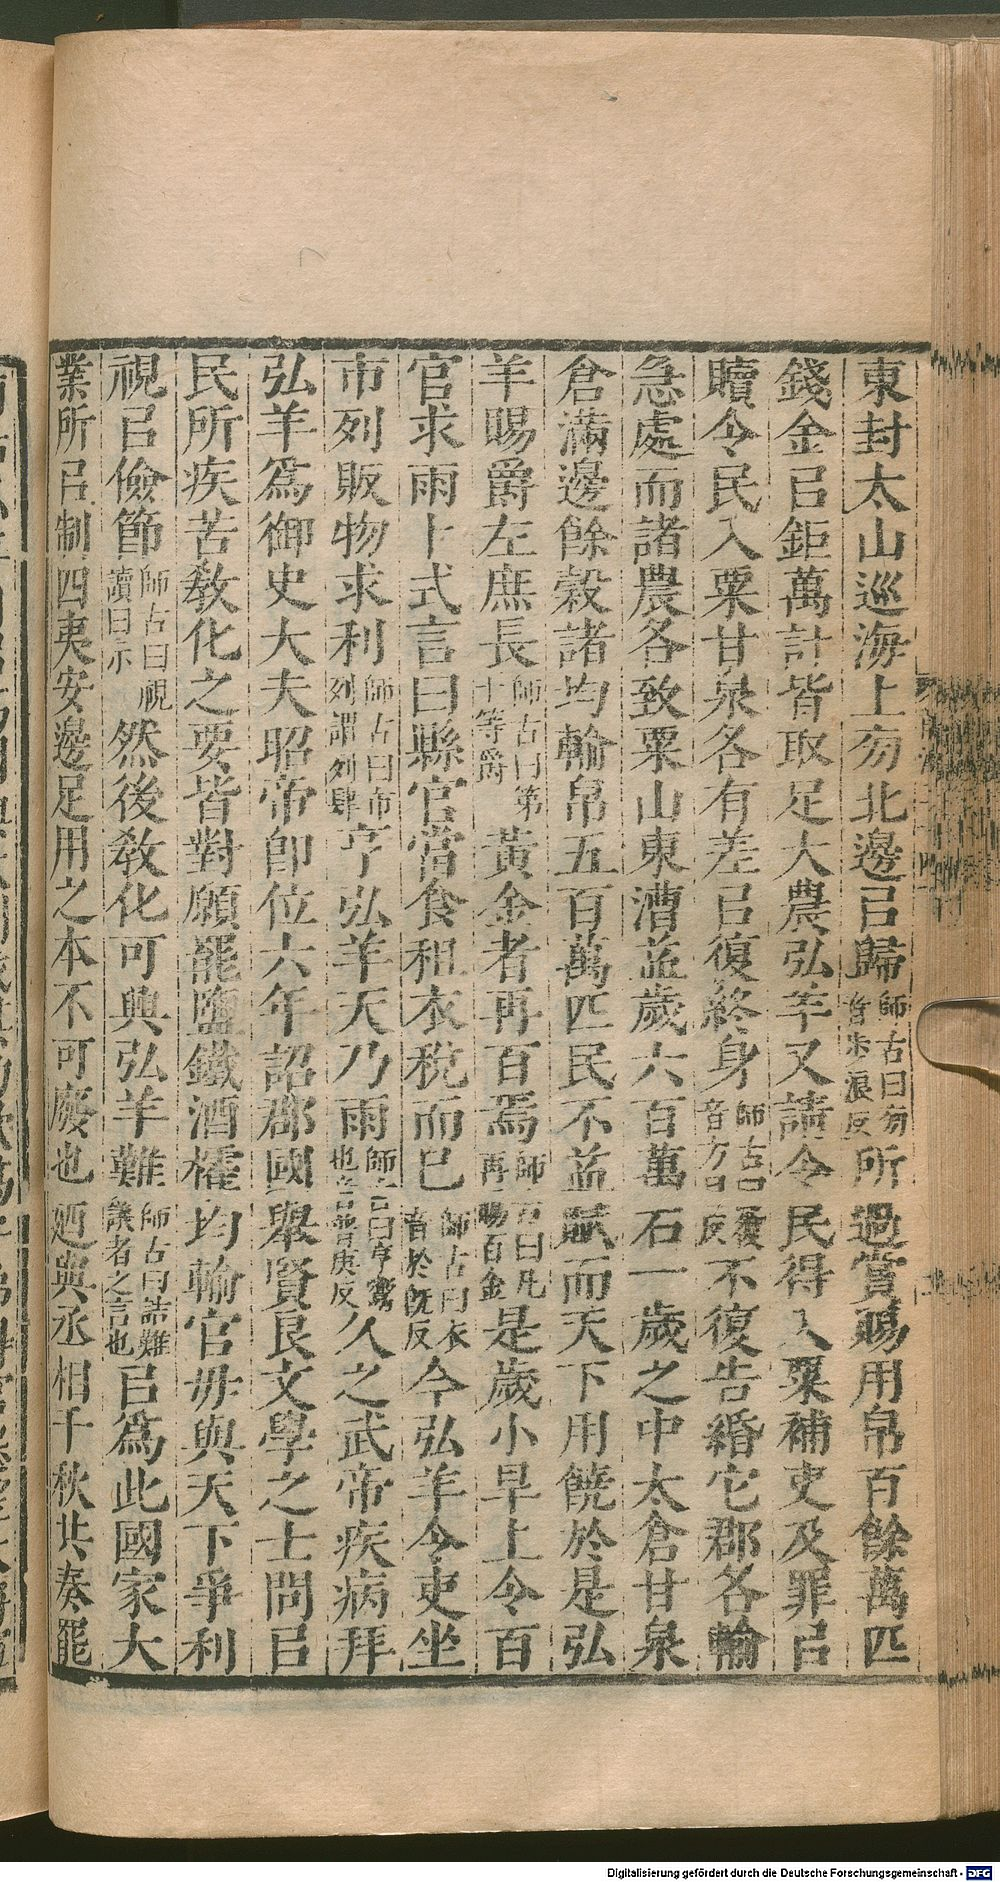 東封太山巡海上旁北邊㠯歸師古曰旁音步浪反所過賞賜用帛百餘萬匹
錢金㠯鉅萬計皆取足大農弘羊又請令民得入粟補吏及罪㠯
贖令民入粟甘泉各有差㠯復終身師古曰復音方目反不復告緡它郡各輸
急處而諸農各致粟山東漕益歲六百萬石一歲之中太倉甘泉
倉滿邊餘穀諸均輸帛五百萬匹民不益賦而天下用饒於是弘
羊賜爵左庶長師古曰第十等爵黃金者再百焉師古曰凡再賜百金是歲小旱上令百
官求雨卜式言曰縣官當食租衣稅而已師古曰衣音於旣反今弘羊令吏坐
市列販物求利師古曰市列謂列肆亨弘羊天乃雨師古曰亨鬻也音普庚反久之武帝疾病拜
弘羊爲御史大夫昭帝卽位六年詔郡國舉賢良文學之士問㠯
民所疾苦敎化之要皆對願罷鹽鐵酒榷均輸官毋與天下爭利
視㠯儉節師古曰視讀曰示然後敎化可興弘羊難師古曰詰難議者之言也㠯爲此國家大
業所㠯制四夷安邊足用之本不可廢也廼與丞相千秋共奏罷
Digitalisierung gefördert durch die Deutsche Forschungsgemeinschaft - DFG